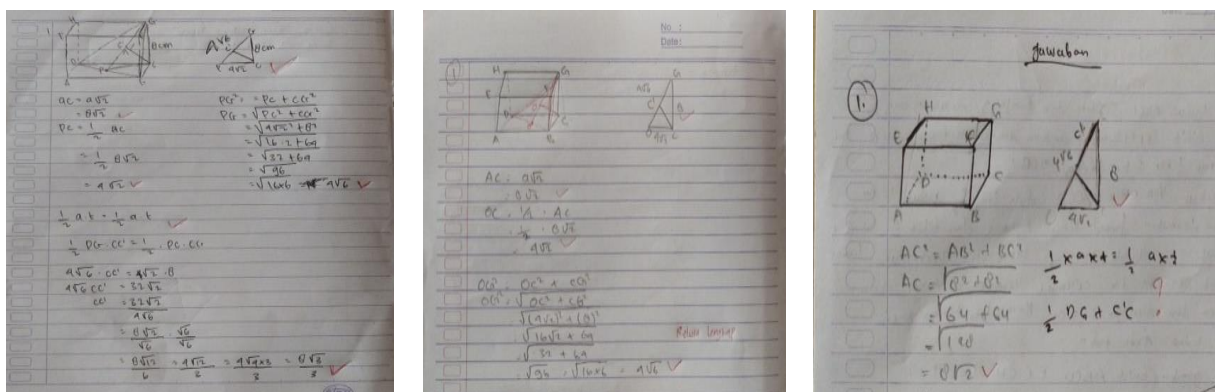 1
H
G
E
8cm
A
B
G
8cm
4√2
C
AC = a√2
= 8√2
PC = 1/2 AC
= 1/2 8√2
= 4√2
PG² = PC + CG²
PG = √PC² + CG²
= √4√2² + 8²
= √16·2 + 64
= √32 + 64
= √96
= √16x6 = 4√6
1/2 a t = 1/2 a t
1/2 PG · CC' = 1/2 · PC · CG
4√6 · CC' = 4√2 · 8
4√6 CC' = 32√2
CC' = 32√2
4√6
= 8√2 · √6
√6 √6
= 8√12 = 4√12 = 4√4x3 = 8√3
6 3 3 3
No :
Date:
1
H
G
E
F
D
C
A
B
G
4√6
C'
8
O
C
4√2
AC = a√2
8√2
OC = 1/2 · AC
1/2 · 8√2
4√2
OG² = OC² + CG²
OG² = √OC² + CG²
√(4√2)² + (8)²
√16√2 + 64
√32 + 64
√96 = √16x6 = 4√6
Belum lengkap
Jawaban
1.
H
G
E
F
D
C
A
B
C'
4√6
8
4√2
AC² = AB² + BC²
AC = √8² + 8²
= √64 + 64
= √128
= 8√2
1/2 x a x t = 1/2 a x t
1/2 DG x C'C
?